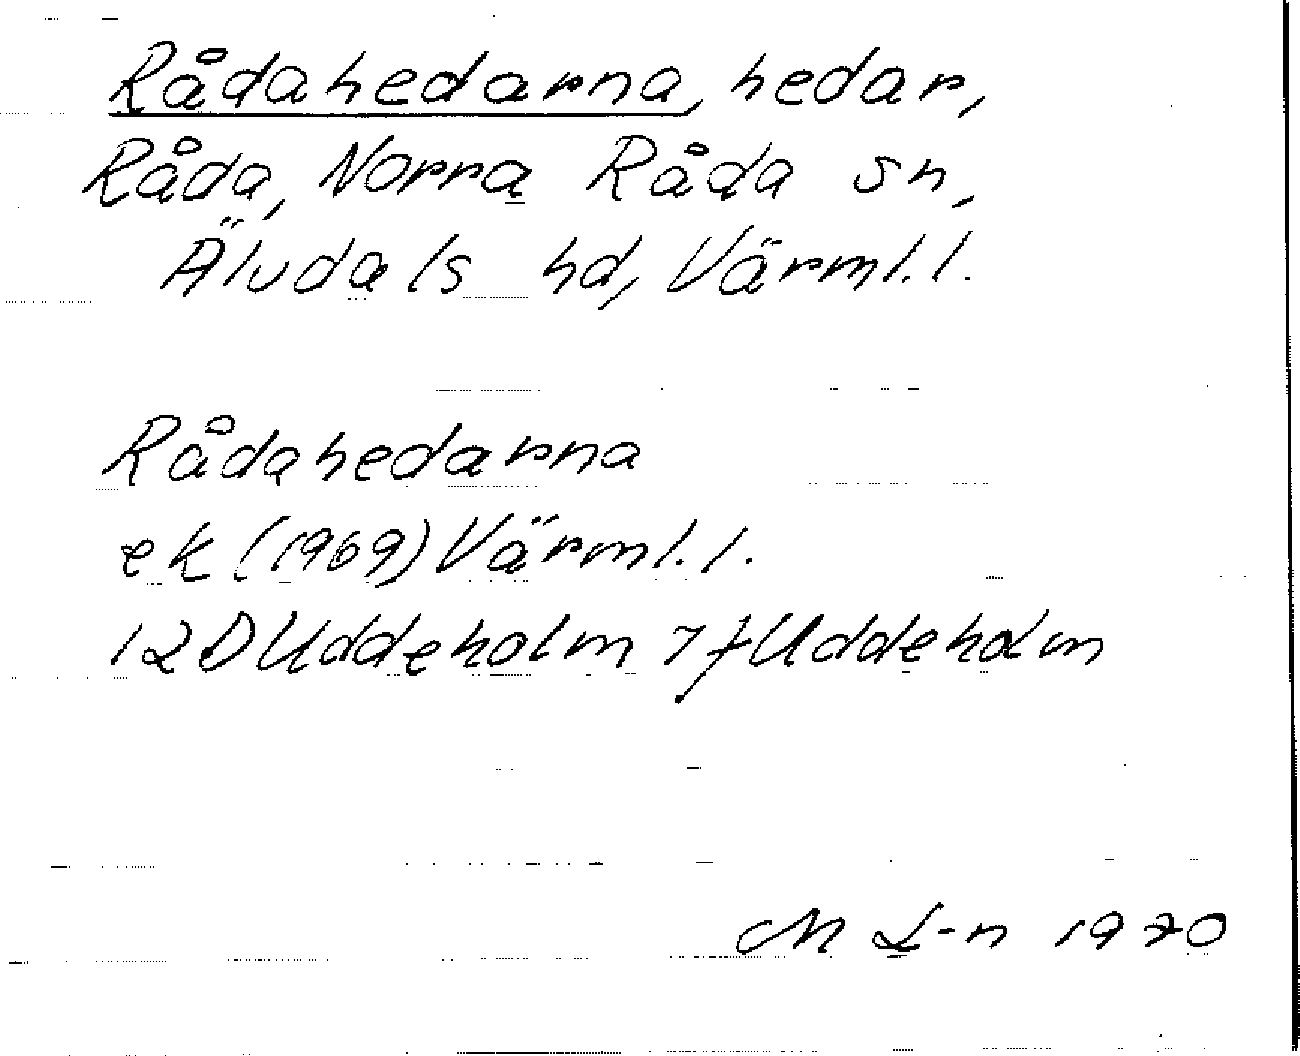 Rådahedarna, hedar,
Råda, Norra Råda sn,
Älvdals hd, Värml. l.
Rådahedarna
ek (1969) Värml. l.
12D Uddeholm 7f Uddeholm
M L-n 1970